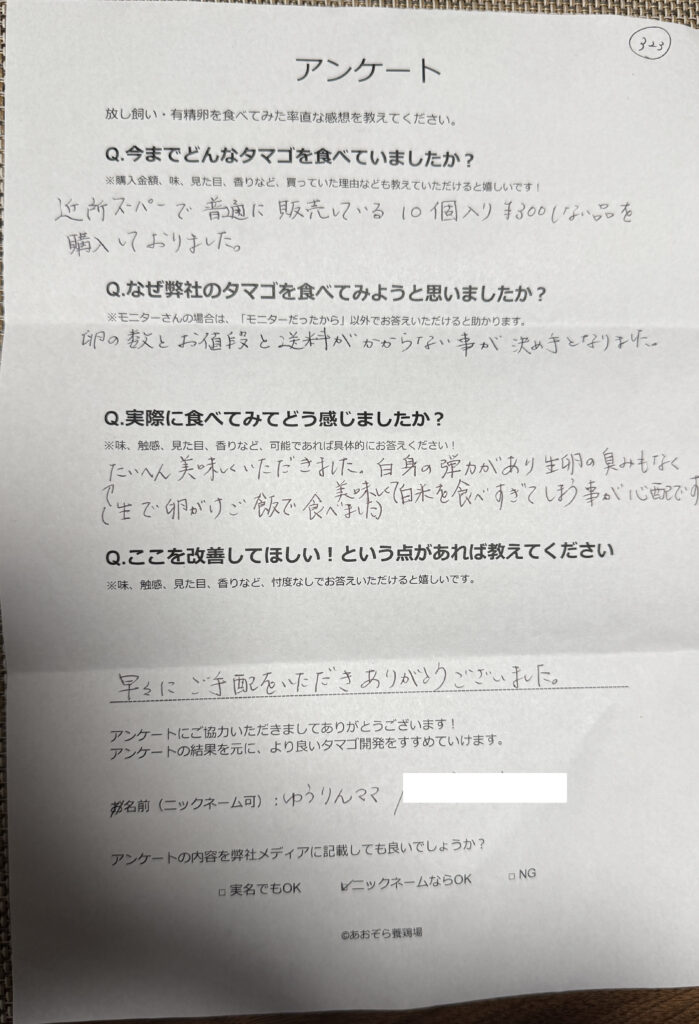 323
アンケート
放し飼い・有精卵を食べてみた率直な感想を教えてください。
Q.今までどんなタマゴを食べていましたか？
※購入金額、味、見た目、香りなど、買っていた理由なども教えていただけると嬉しいです！
近所スーパーで普通に販売している10個入り¥300しない品を
購入しておりました。
Q.なぜ弊社のタマゴを食べてみようと思いましたか？
※モニターさんの場合は、「モニターだったから」以外でお答えいただけると助かります。
卵の数とお値段と送料がかからない事が決め手となりました。
Q.実際に食べてみてどう感じましたか？
※味、触感、見た目、香りなど、可能であれば具体的にお答えください！
たいへん美味しくいただきました。白身の弾力があり生卵の臭みもなく
(生で卵がけご飯で食べました)美味しくて白米を食べすぎてしまう事が心配です
Q.ここを改善してほしい！という点があれば教えてください
※味、触感、見た目、香りなど、忖度なしでお答えいただけると嬉しいです。
早々にご手配をいただきありがとうございました。
アンケートにご協力いただきましてありがとうございます！
アンケートの結果を元に、より良いタマゴ開発をすすめていけます。
お名前（ニックネーム可）：ゆうりんママ /
アンケートの内容を弊社メディアに記載しても良いでしょうか？
□ 実名でもOK ☑ニックネームならOK □ NG
©あおぞら養鶏場